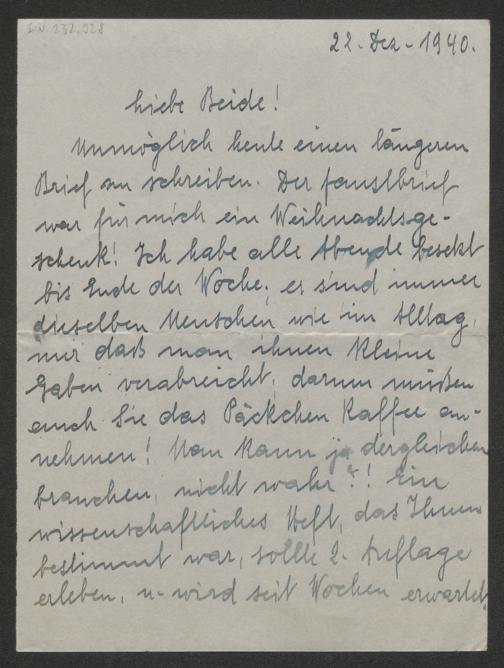 I.N. 232.928
22. Dez. 1940.
Liebe Beide!
Unmöglich heute einen längeren
Brief zu schreiben. Der Faustbrief
war für mich ein Weihnachtsge-
schenk! Ich habe alle Abende besetzt
bis Ende der Woche; es sind immer
dieselben Menschen wie im Alltag,
nur daß man ihnen kleine
Gaben verabreicht, darum müßen
auch Sie das Päckchen Kaffee an-
nehmen! Man kann ja dergleichen
brauchen, nicht wahr?! Ein
wissenschaftliches Heft, das Ihnen
bestimmt war, sollte 2. Auflage
erleben, u. wird seit Wochen erwartet.